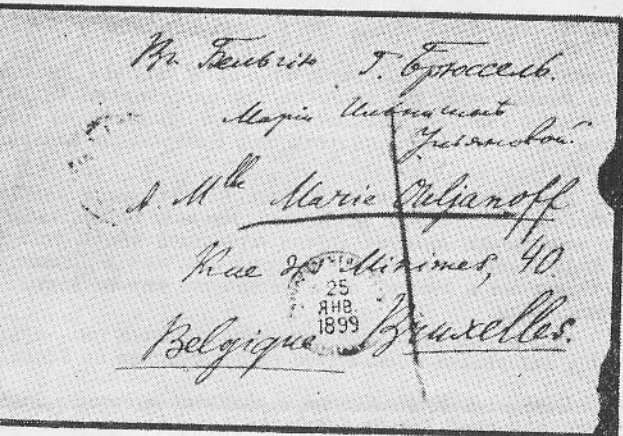 Въ Бельгію Г. Брюссель.
Маріи Ильинишнѣ
Ульяновой.
A. Mlle Marie Ouljanoff
Rue des Minimes, 40.
25
ЯНВ.
1899
Belgique Bruxelles.